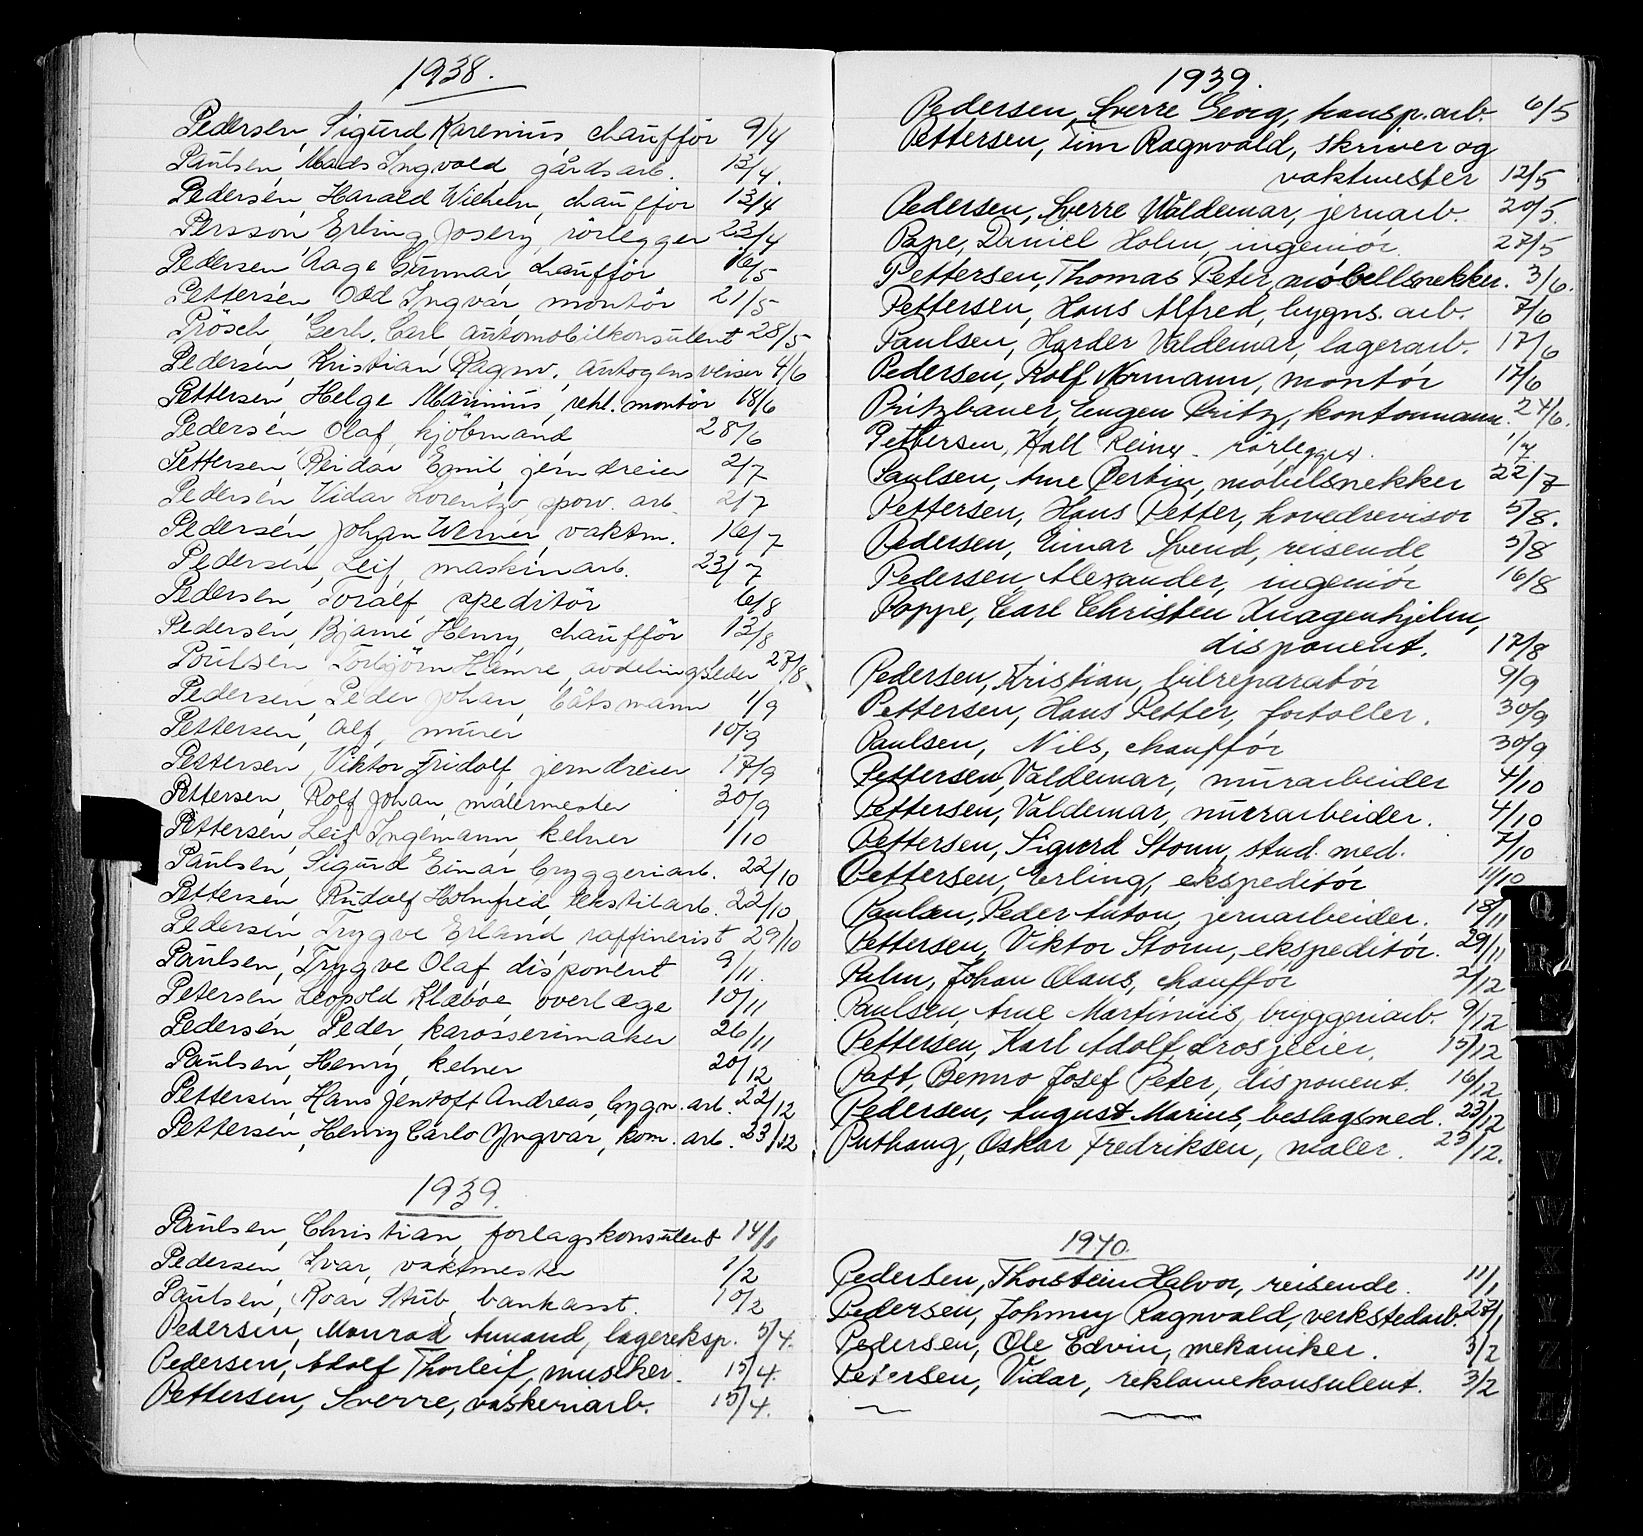 1938.
Pedersen, Sigurd Karenius, chauffør 9/4
Paulsen, Mads Ingvald, gårdsarb. 13/4.
Pedersen, Harald Wilhelm, chauffør 13/4
Persson, Erling Josery, rørlegger 23/4
Pedersen, Aage Gunnar, chauffør 16/5
Pettersen, Odd Ingvar, montør 21/5
Prösch, Gerh. Carl, automobilkonsulent 28/5
Pedersen, Kristian Ragnv. autogensveiser 4/6
Pettersen, Helge Marinius, rekl. montör 18/6
Pedersen, Olaf, kjöbmand 28/6
Pettersen, Reidar Emil, jerndreier 2/7
Pedersen, Vidar Lorentz, sporv. arb. 2/7
Pedersen, Johan Werner, vaktm. 16/7
Pedersen, Leif, maskinarb. 23/7
Pedersen, Toralf, speditör 6/8
Pedersen, Bjarne Henry, chauffør 13/8
Poulsen, Torbjörn Hamre, avdelingsleder 27/8
Pedersen, Peder Johan, båtsmann 1/9
Pettersen, Alf, murer 10/9
Pettersen, Viktor Fridolf, jerndreier 17/9
Pettersen, Rolf Johan, målermester 30/9
Pettersen, Leif Ingemann, kelner 1/10
Paulsen, Sigurd Einar, bryggeriarb. 22/10
Pettersen, Rudolf Holmfred, tekstilarb. 22/10
Pedersen, Trygve Erland, raffinerist 29/10
Paulsen, Trygve Olaf, disponent 9/11.
Petersen, Leopold Klæboe, overlæge 10/11
Pedersen, Peder, karosserimaker 26/11
Paulsen, Henry, kelner 20/12
Pettersen, Hans Jentoft Andreas, bygn. arb. 22/12
Pettersen, Henry Carlo Yngvar, kom. arb. 23/12
1939.
Paulsen, Christian, forlagskonsulent 14/1
Pedersen, Ivar, vaktmester 1/2
Paulsen, Roar Stub, bankasst. 10/2
Pedersen, Monrad Amand, lagereksp. 5/4.
Pedersen, Adolf Thorleif, musiker. 15/4.
Pettersen, Sverre, vaskeriarb. 15/4.
1939.
Pedersen, Sverre Georg, transp.arb. 6/5
Pettersen, Tim Ragnvald, skriver og
vaktmester 12/5
Pedersen, Sverre Waldemar, jernarb. 20/5.
Pape, Daniel Holm, ingeniør. 27/5
Pettersen, Thomas Peter, møbellsnekker. 3/6.
Pettersen, Hans Alfred, bygns. arb. 7/6
Paulsen, Harder Valdemar, lagerarb. 17/6
Pedersen, Rolf Normann, montør 17/6
Pritzbauer, Eugen Fritz, kontormann. 24/6.
Pettersen, Hall Reiner. rørlegger. 1/7
Paulsen, Arne Bertin, møbelsnekker 22/7
Pettersen, Hans Petter, hovedrevisor 5/8.
Pedersen, Einar Svend, reisende 5/8
Pedersen, Alexander, ingeniør 16/8
Poppe, Carl Christen Knagenhjelm,
disponent. 17/8
Pedersen, Kristian, bilreparatør 9/9
Pettersen, Hans Petter, fortoller. 30/9
Paulsen, Nils, chauffør 30/9
Pettersen, Valdemar, murarbeider 4/10
Pettersen, Valdemar, murarbeider. 4/10
Pettersen, Sigurd Stonn, stud. med. 7/10
Pettersen, Erling, ekspeditør 11/10
Paulsen, Peder Anton, jernarbeider. 18/11
Pettersen, Viktor Stonn, ekspeditør. 29/11
Palm, Johan Olaus, chauffør 2/12
Paulsen, Arne Martinius, bryggeriarb. 9/12
Pettersen, Karl Adolf, drosjeeier. 15/12
Patt, Benno Josef Peter, disponent. 16/12
Pedersen, August Marius, beslagsmed. 23/12
Puthaug, Oskar Fredriksen, maler. 23/12.
1940.
Pedersen, Thorstein Halvor, reisende. 11/1
Pedersen, Johnny Ragnvald, verkstedarb. 27/1
Pedersen, Ole Edvin, mekaniker. 3/2
Petersen, Vidar, reklamekonsulent. 3/2
Q
R
S
T
U
V
W
X
Y
Z
Æ
Ø